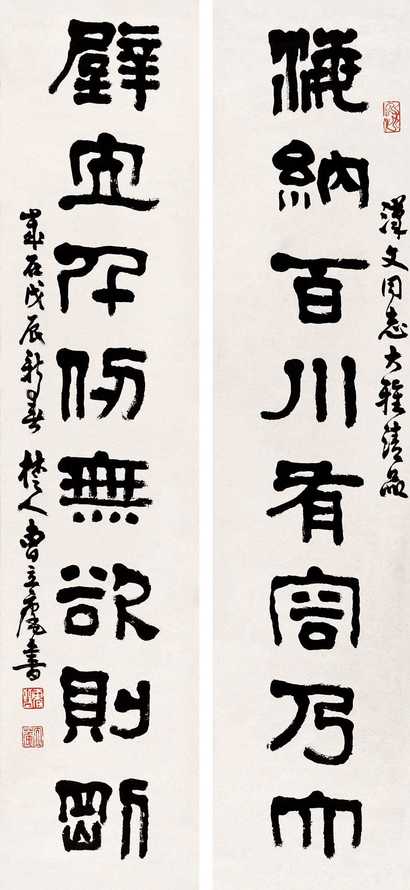 漢文同志大雅清品
海納百川有容乃大
壁立千仞無欲則剛
歲在戊辰新春 楚人曹立庵書